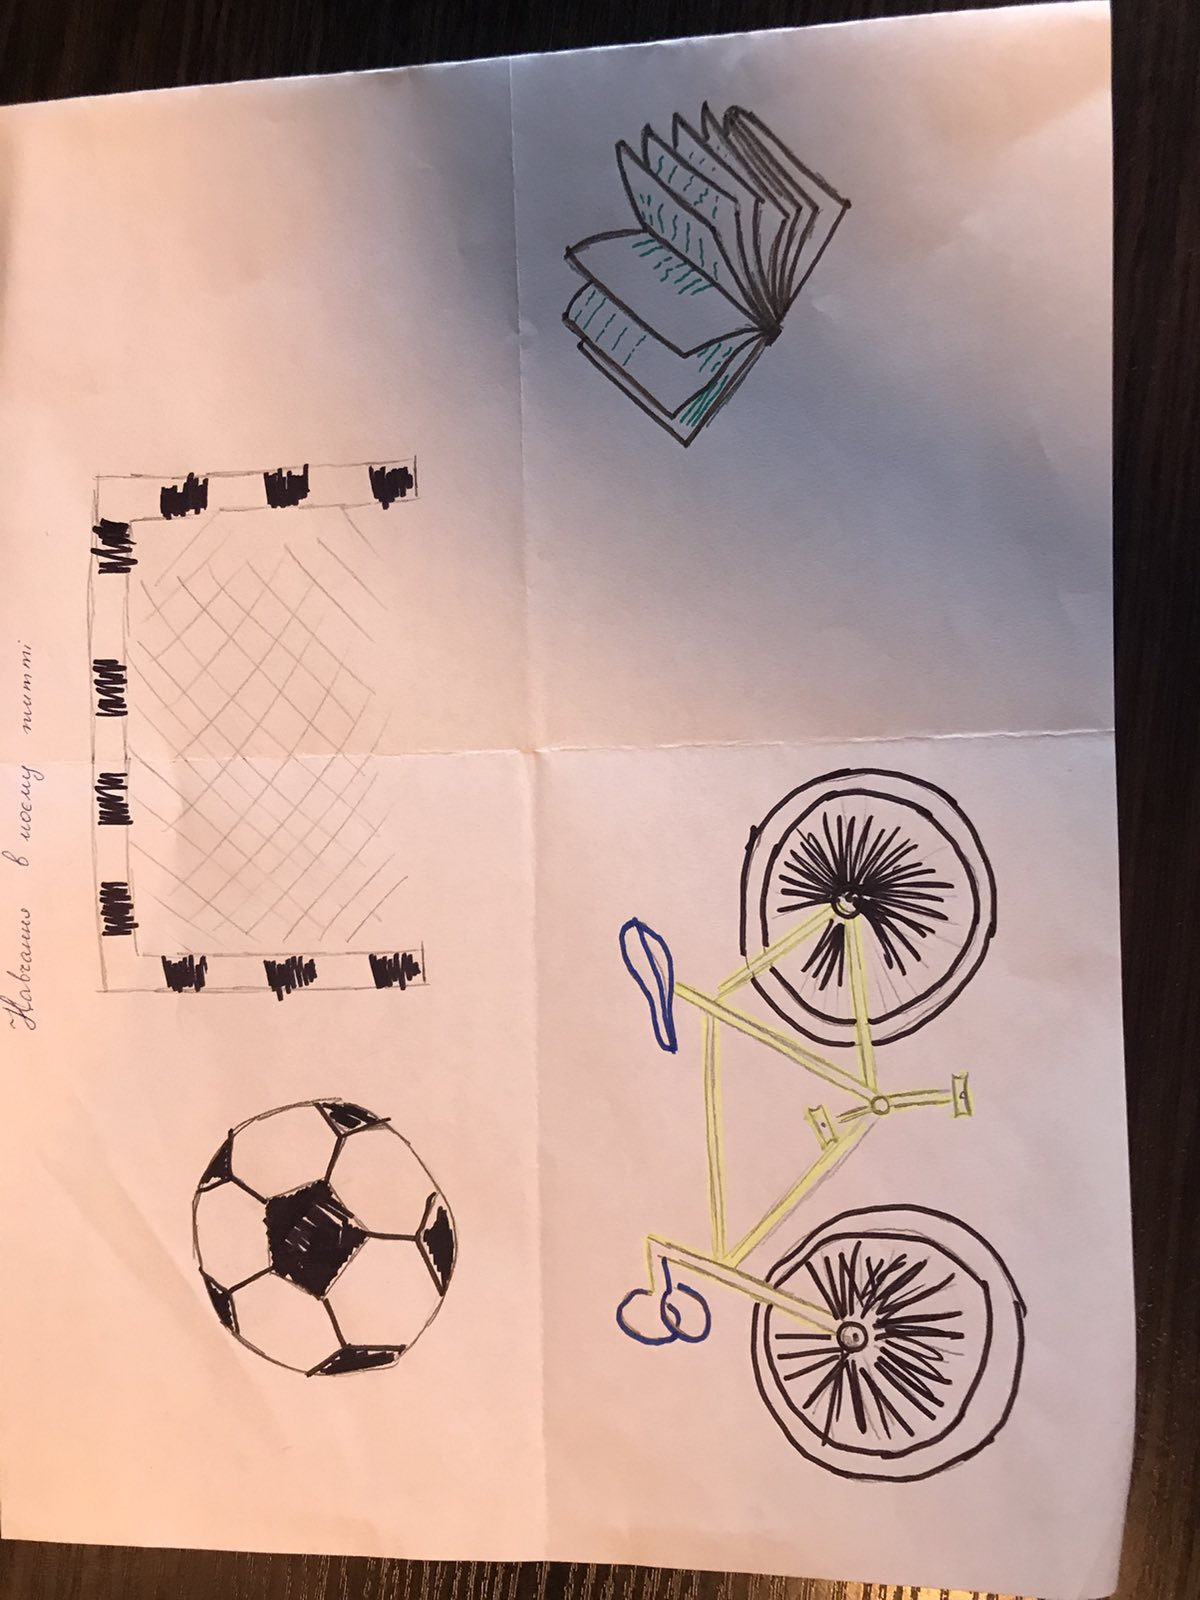 Навчання в моєму житті